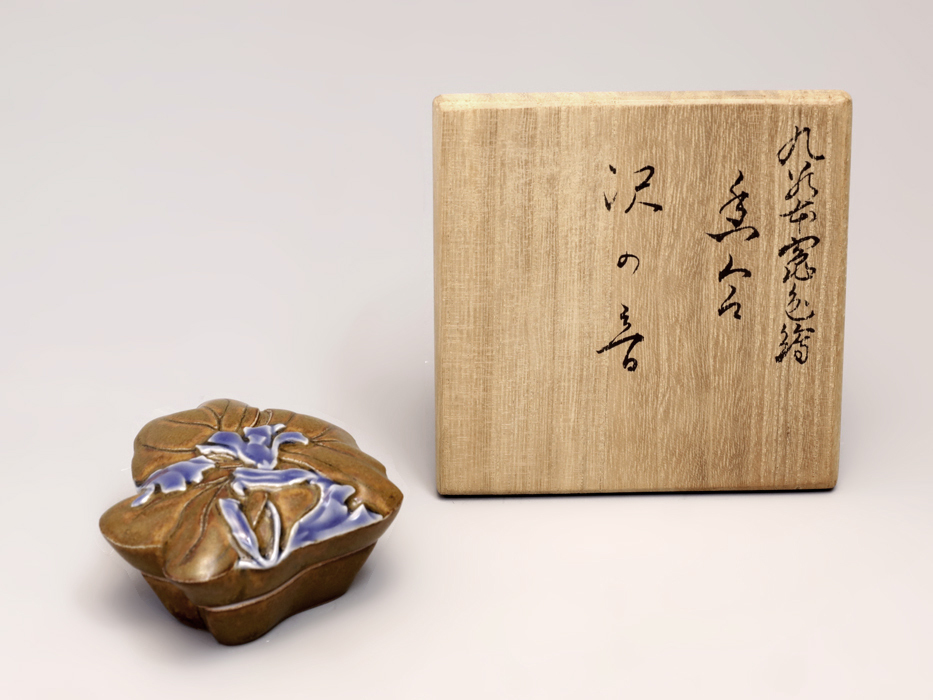 九谷本窯色繪
香合
沢の音